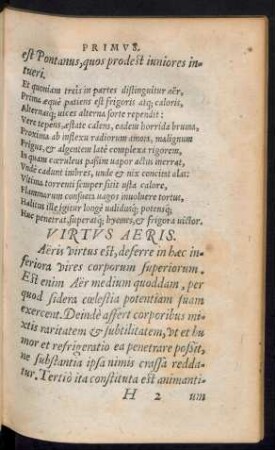 PRIMVS.
est Pontanus, quos prodest iuniores in-
tueri.
Et quoniam treis in partes distinguitur aër,
Prima æquè patiens est frigoris atq; caloris,
Alternatq; uices alterna sorte rependit:
Vere tepens, æstate calens, eadem horrida bruma,
Proxima ab inflexu radiorum amota, malignum
Frigus, & algentem latè complexa rigorem,
In quam cæruleus passim uapor actus inerrat,
Vnde cadunt imbres, unde & nix concint alas:
Vltima torrenti semper siti usta calore,
Flammarum consueta uagos inuoluere tortus,
Halitus ille igitur longè ualidusq; potensq;
Hac penetrat, superatq; hyemes, & frigora uictor.
VIRTVS AERIS.
Aëris virtus est, deferre in hæc in-
feriora vires corporum superiorum.
Est enim Aër medium quoddam, per
quod sidera cœlestia potentiam suam
exercent. Deindè assert corporibus mi-
xtis raritatem & subtilitatem, vt et hu-
mor et refrigeratio ea penetrare possit,
ne substantia ipsa nimis crassa redda-
tur. Tertiò ita constituta est animanti-
H 2 um